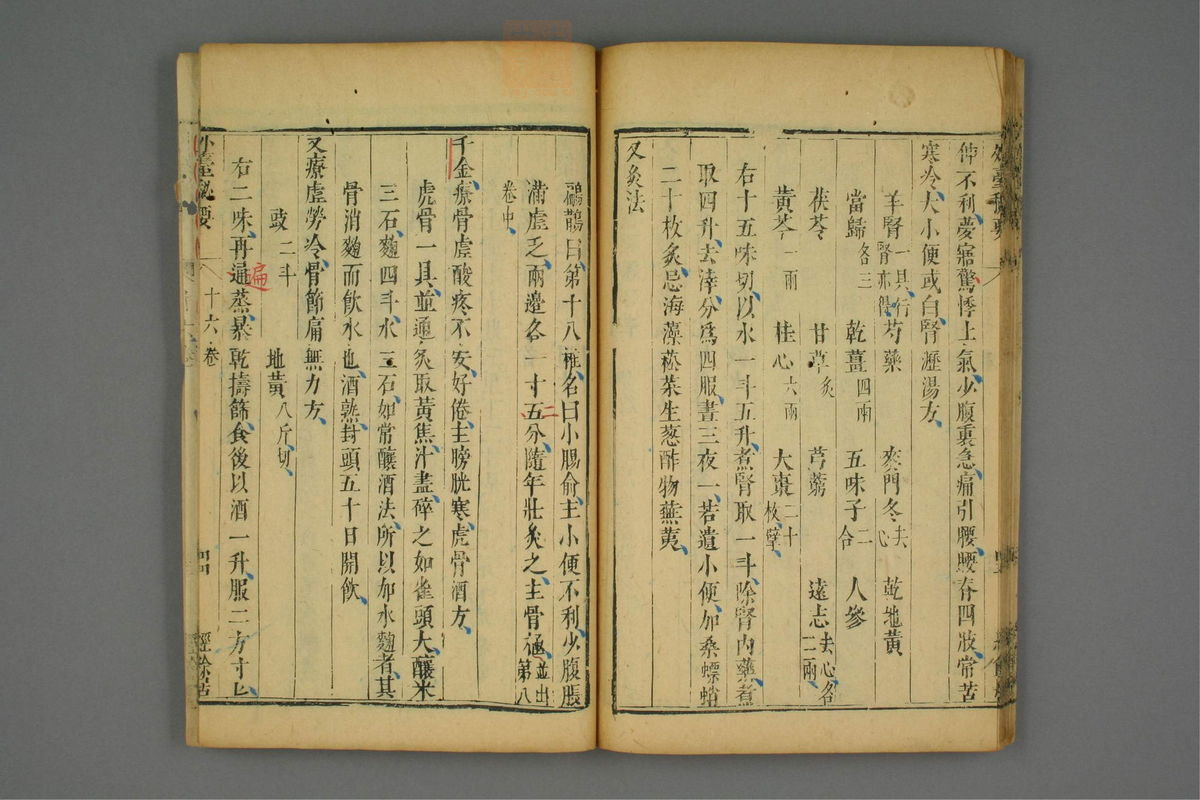 伸不利夢寤驚悸上氣少腹裏急痛引腰腰脊四肢常苦
寒冷大小便或白腎瀝湯方
羊腎一具行腎亦得 芍藥 麥門冬去心 乾地黃
當歸各三 乾薑四兩 五味子二合 人參
茯苓 甘草炙 芎藭 遠志去心各二兩
黃芩一兩 桂心六兩 大棗二十枚擘
右十五味切以水一斗五升煮腎取一斗除腎內藥煮
取四升去滓分爲四服晝三夜一若遺小便加桑螵蛸
二十枚炙忌海藻菘菜生葱酢物蕪荑
又灸法
扁鵲曰第十八椎名曰小腸俞主小便不利少腹脹
滿虛乏兩邊各一寸五分隨年壯灸之主骨極並出第八
卷中
千金療骨虛酸疼不安好倦主膀胱寒虎骨酒方
虎骨一具並通炙取黃焦汁盡碎之如雀頭大釀米
三石麴四斗水三石如常釀酒法所以加水麴者其
骨消麴而飲水也酒熟封頭五十日開飲
又療虛勞冷骨節痛無力方
豉二斗 地黃八斤切
右二味再遍蒸暴乾擣篩食後以酒一升服二方寸匕
遍
二
外臺秘要 十六卷 四四 經餘居